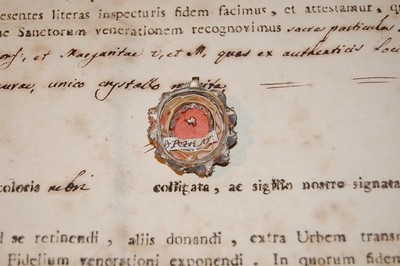 esentes literas inspecturis fidem facimus, et attestamur, qu
ne Sanctorum venerationem recognovimus sacras particulas
Conf., et Margaritae V. et M. quas ex authenticis Loci
unico crystallo munita
S. Petri Ap.
coloris rubri colligata, ac sigillo nostro signata
d se retinendi, aliis donandi, extra Urbem transm
Fidelium venerationi exponendi. In quorum fidem